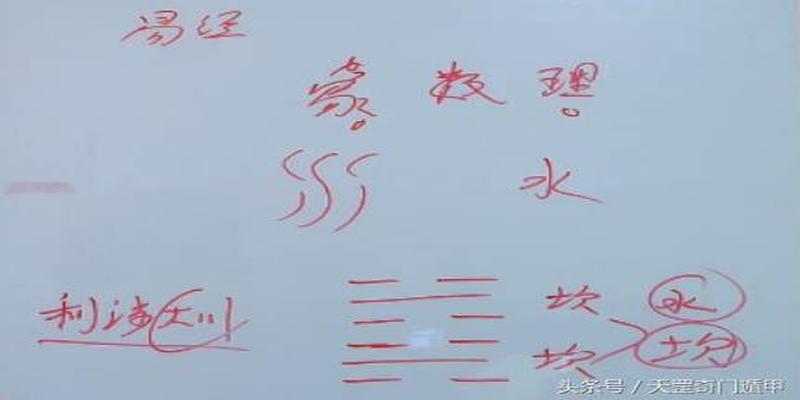 易经
象 数 理
水
利涉大川
坎 水
坎 坎
头条号／天罡奇门遁甲